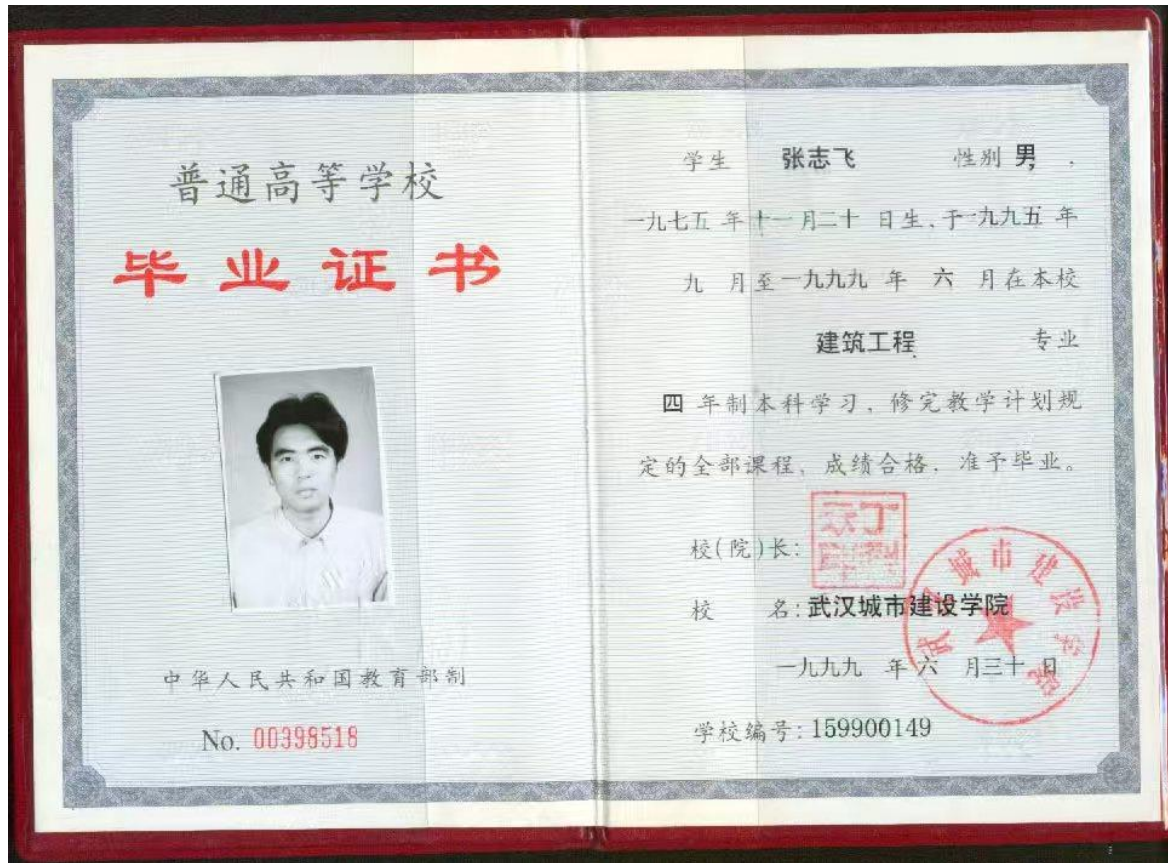 普通高等学校
毕业证书
中华人民共和国教育部制
No. 00398518
学生 张志飞 性别 男,
一九七五 年 十一 月二十 日生, 于一九九五 年
九 月至一九九九 年 六 月在本校
建筑工程 专业
四 年制本科学习, 修完教学计划规
定的全部课程, 成绩合格, 准予毕业。
校(院)长:
校 名: 武汉城市建设学院
一九九九 年 六 月三十 日
学校编号: 159900149
武汉城市建设学院